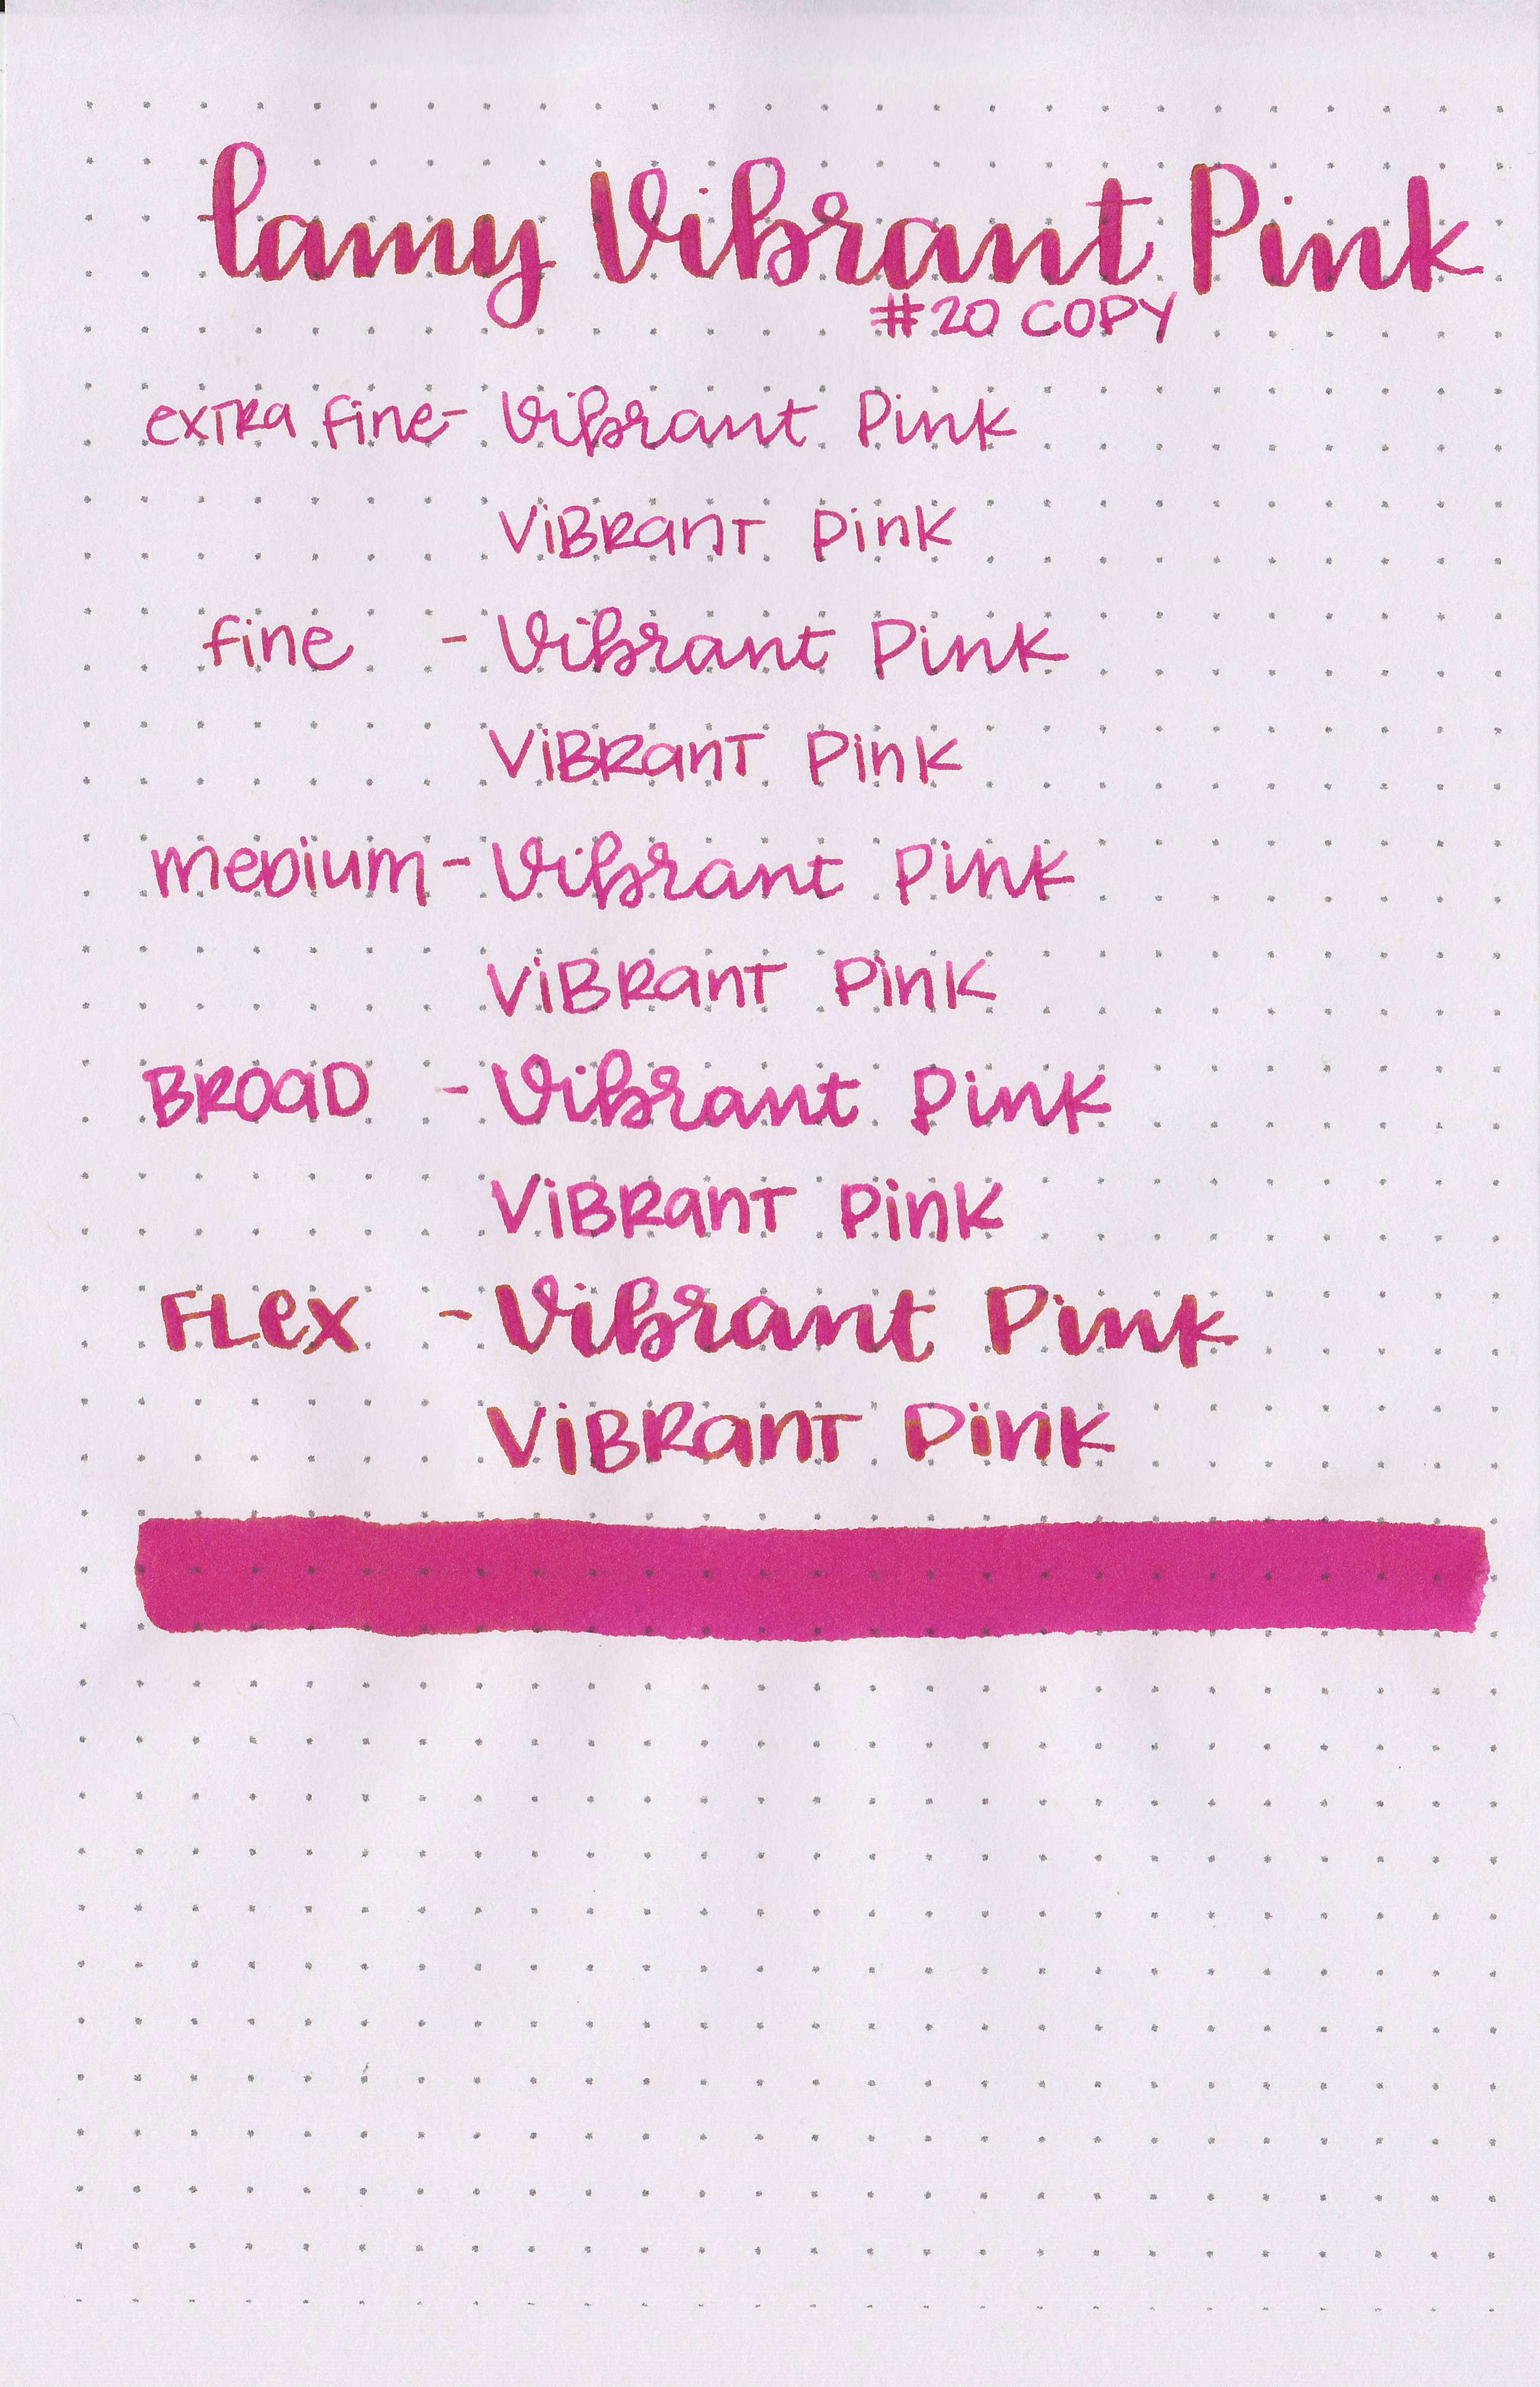 Lamy Vibrant Pink
#20 COPY
EXTRA Fine- Vibrant Pink
ViBRanT Pink
Fine - Vibrant Pink
ViBRanT Pink
MEDiUM - Vibrant Pink
ViBRanT Pink
BROaD - Vibrant Pink
ViBRanT Pink
FLeX - Vibrant Pink
ViBRanT Pink